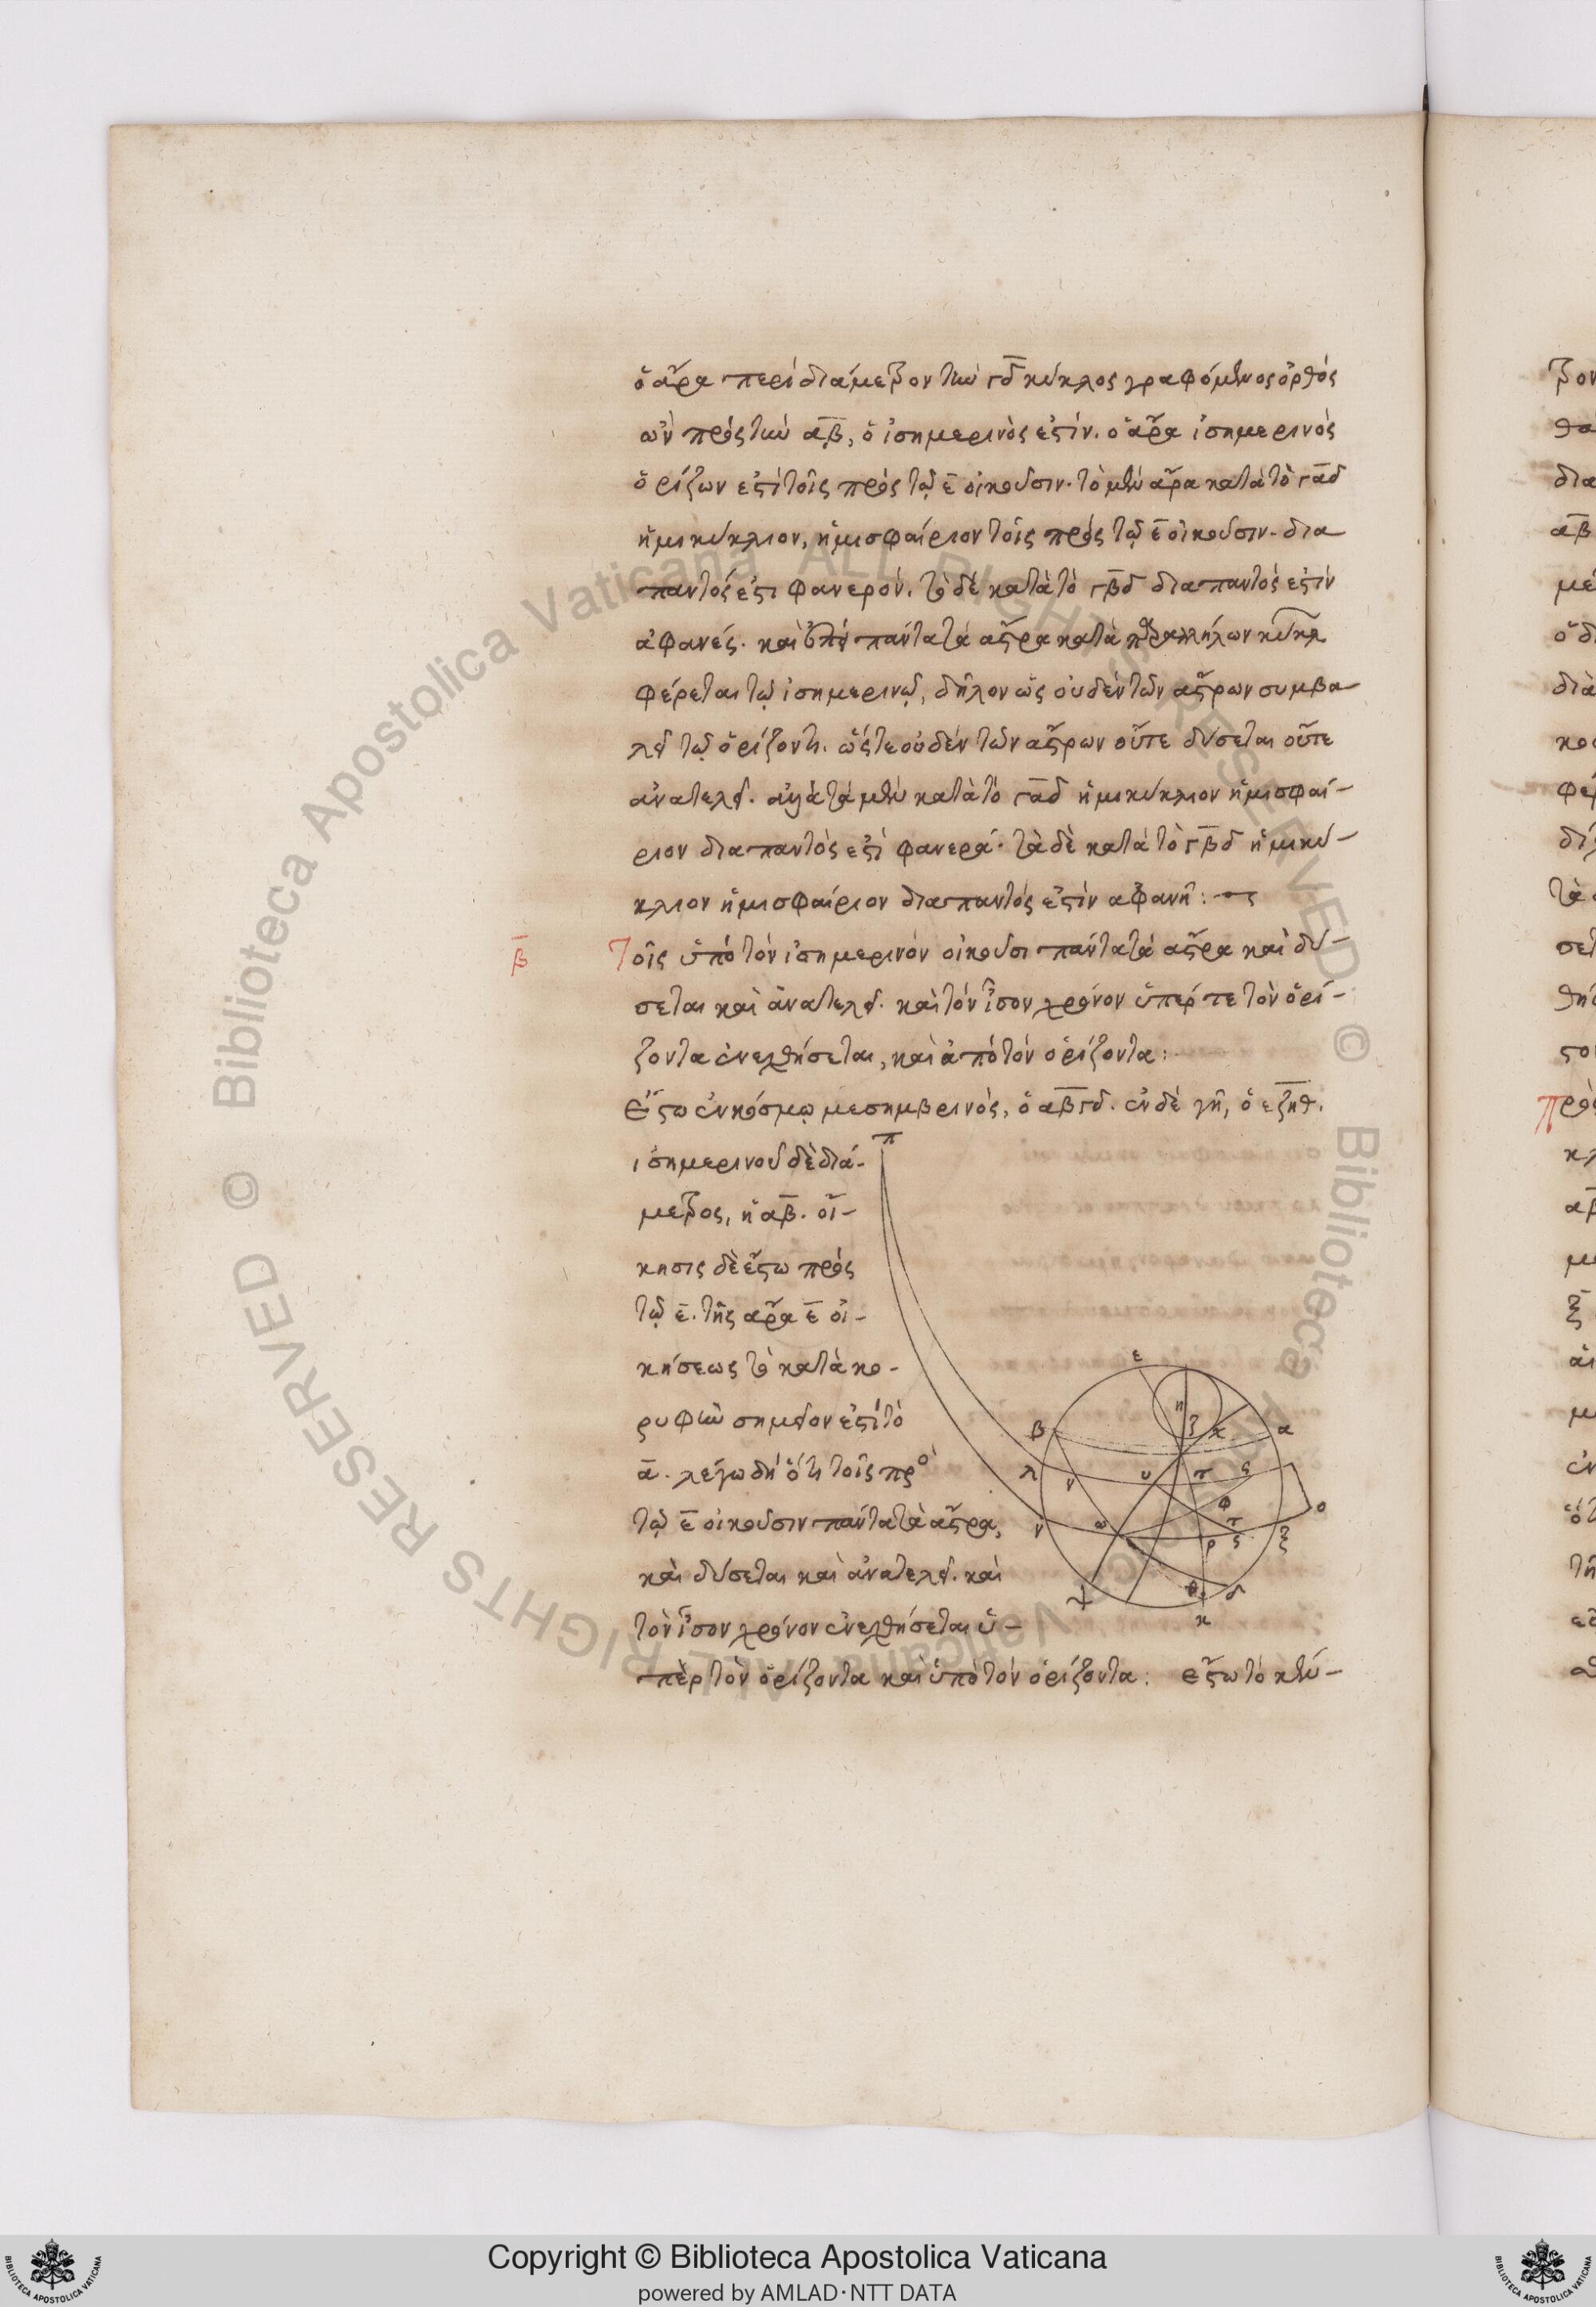 ὁ ἄρα περὶ διάμετρον τὴν γδ κύκλος γραφόμενος ὀρθὸς
ὢν πρὸς τὴν αβ, ὁ ἰσημερινός ἐστιν. ὁ ἄρα ἰσημερινὸς
ὁρίζων ἐστὶ τοῖς πρὸς τῷ ε οἰκοῦσιν. τὸ μὲν ἄρα κατὰ τὸ γαδ
ἡμικύκλιον, ἡμισφαίριον τοῖς πρὸς τῷ ε οἰκοῦσιν. δια
παντός ἐστι φανερόν. τὸ δὲ κατὰ τὸ γβδ διαπαντός ἐστιν
ἀφανές. καὶ ἐπεὶ πάντα τὰ ἄστρα κατὰ παραλλήλων κύκλ
φέρεται τῷ ἰσημερινῷ, δῆλον ὡς οὐδὲν τῶν ἄστρων συμβα
λεῖ τῷ ὁρίζοντι. ὥστε οὐδὲν τῶν ἄστρων οὔτε δύσεται οὔτε
ἀνατελεῖ. ἀλλὰ τὰ μὲν κατὰ τὸ γαδ ἡμικύκλιον ἡμισφαί-
ριον διαπαντός ἐστι φανερά. τὰ δὲ κατὰ τὸ γβδ ἡμικύ-
κλιον ἡμισφαίριον διαπαντός ἐστιν ἀφανῆ:
β Τοῖς ὑπὸ τὸν ἰσημερινὸν οἰκοῦσι πάντα τὰ ἄστρα καὶ δύ-
σεται καὶ ἀνατελεῖ. καὶ τὸν ἴσον χρόνον ὑπέρ τε τὸν ὁρί-
ζοντα ἐνεχθήσεται, καὶ ἀπὸ τὸν ὁρίζοντα:
Ἔστω ἐν κόσμῳ μεσημβρινός, ὁ αβγδ. ἐν δὲ γῇ, ὁ εζηθ.
ἰσημερινοῦ δὲ διά-
μετρος, ἡ αβ. οἴ-
κησις δὲ ἔστω πρὸς
τῷ ε. τῆς ἄρα ε οἰ-
κήσεως τὸ κατὰ κο-
ρυφὴν σημεῖον ἐστὶ τὸ
α. λέγω δὴ ὅτι τοῖς πρὸ
τῷ ε οἰκοῦσιν πάντα τὰ ἄστρα,
καὶ δύσεται καὶ ἀνατελεῖ. καὶ
τὸν ἴσον χρόνον ἐνεχθήσεται ὑ-
πὲρ τὸν ὁρίζοντα καὶ ὑπὸ τὸν ὁρίζοντα: ἔστω τὸ κέν-
π
ε
η
β ζ κ α
λ ν υ π ς
φ ο
ν ω τ
ρ ς ξ
θ δ
ψ κ
Copyright © Biblioteca Apostolica Vaticana
powered by AMLAD·NTT DATA
BIBLIOTECA APOSTOLICA VATICANA
© Biblioteca Apostolica Vaticana ALL RIGHTS RESERVED